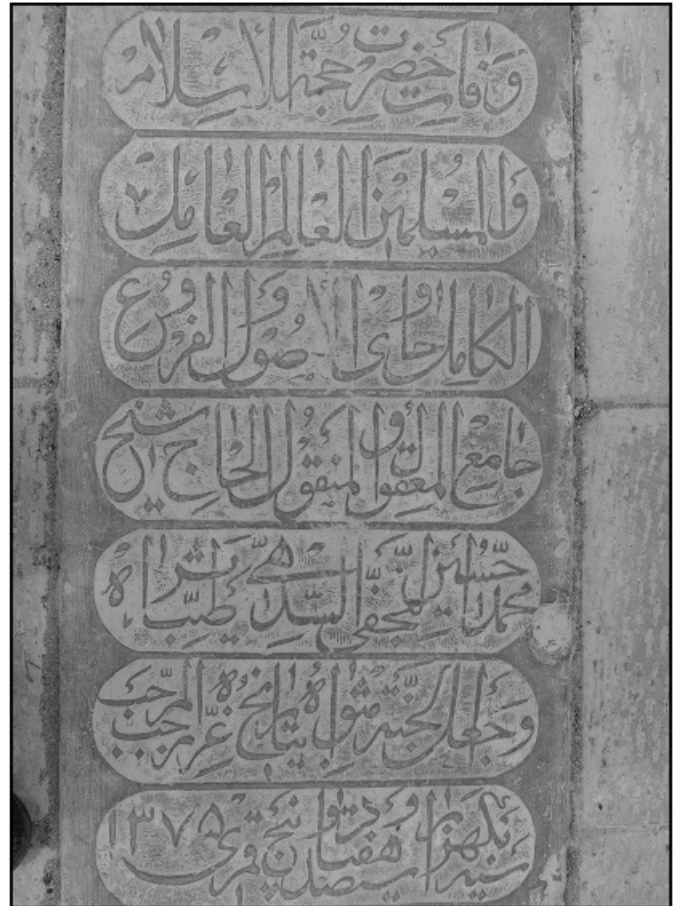 وفات حضرت حجة الاسلام
والمسلمین العالم العامل
الکامل حاوی الاصول والفروع
جامع المعقول والمنقول الحاج شیخ
محمد حسین النجفی السدهی طیب ثراه
وجعل الجنة مثواه بتاریخ غره رجب المرجب
یکهزار و سیصد و هفتاد پنج قمری ۱۳۷۵